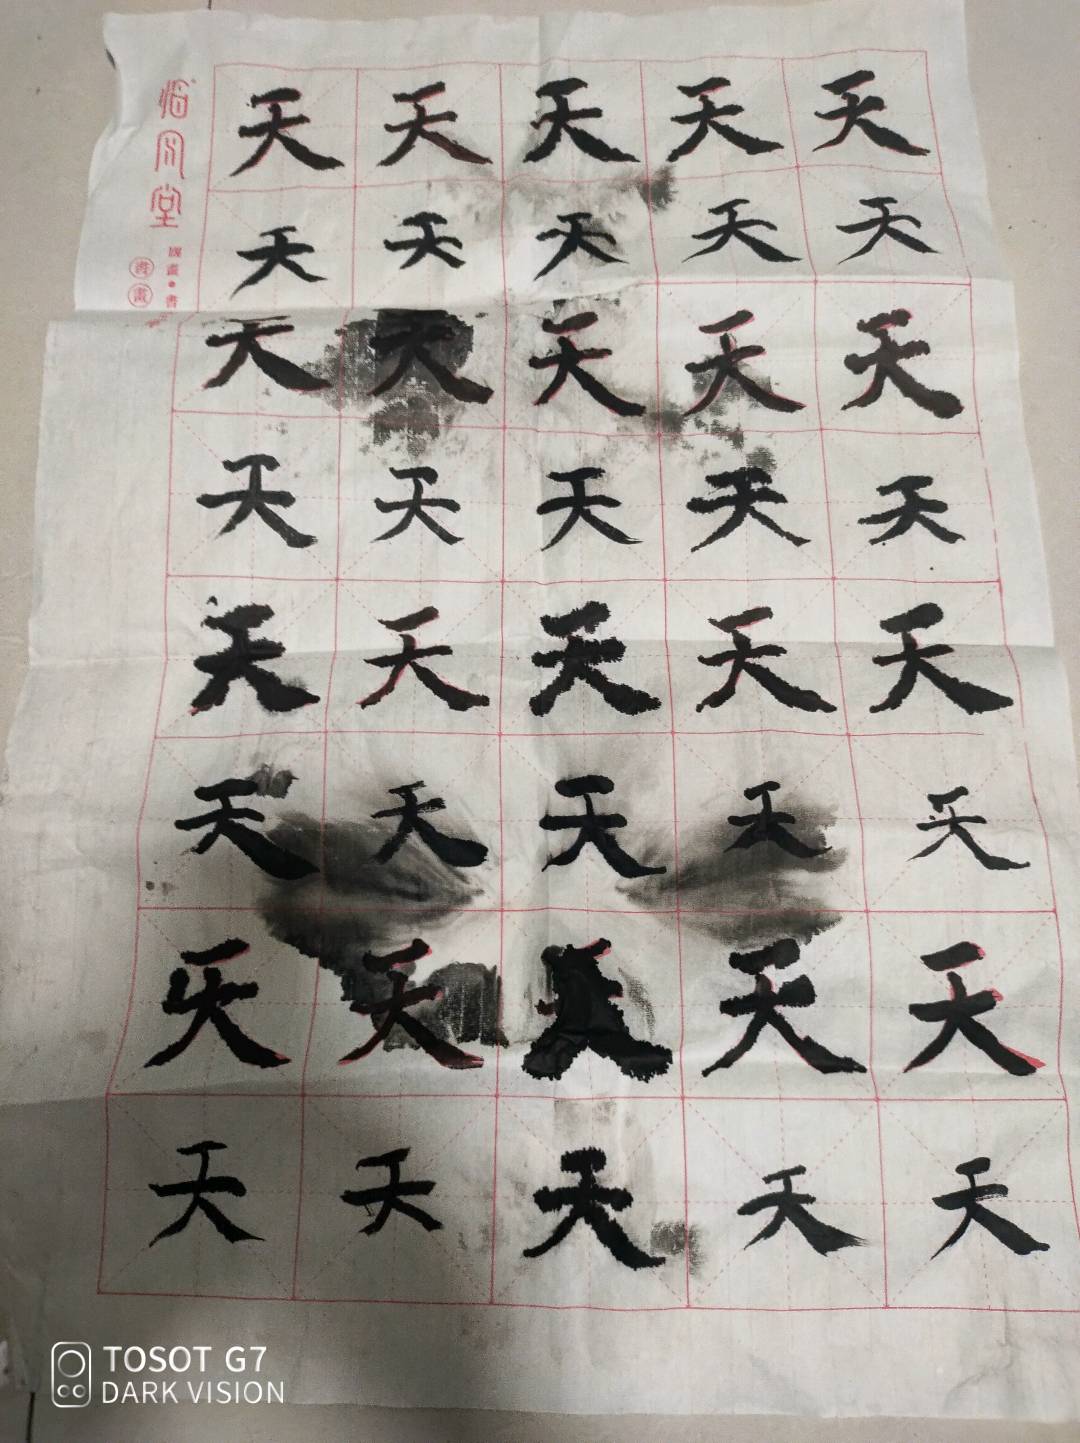 堂
國畫•書
書畫
天天天天天
天天天天天
天天天天天
天天天天天
天天天天天
天天天天天
天天天天天
天天天天天
TOSOT G7
DARK VISION